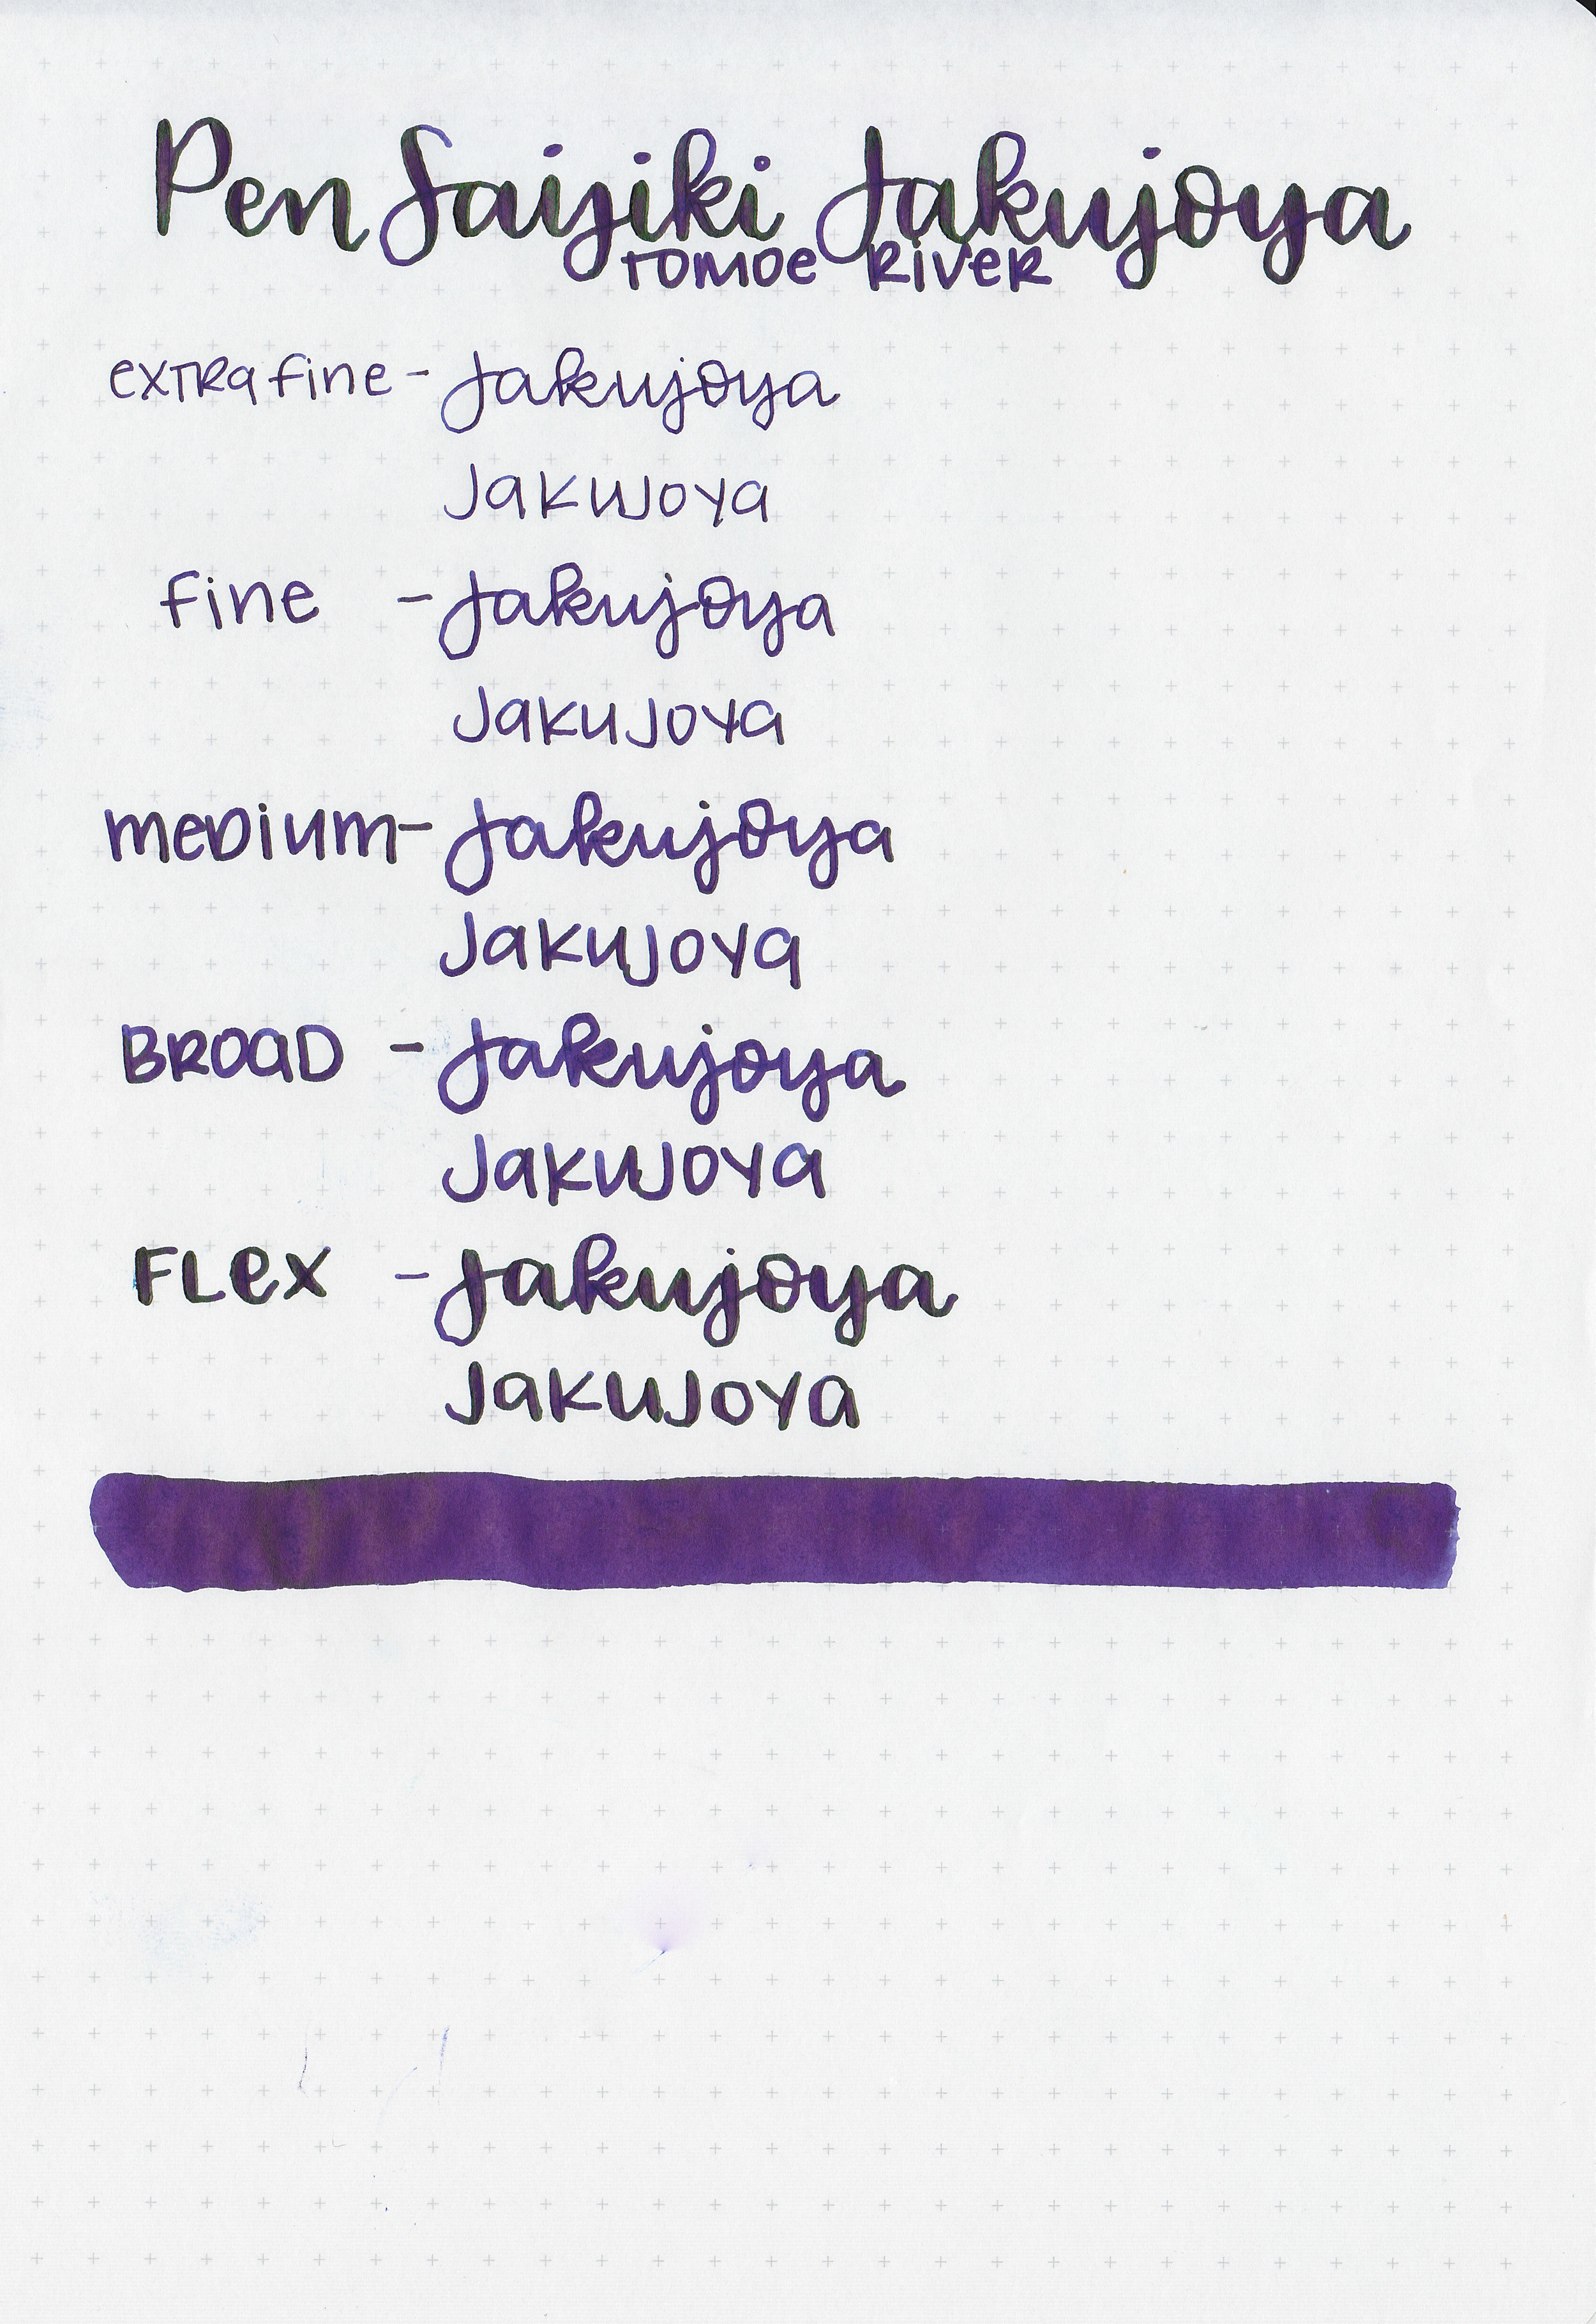 Pen Saiyiki Jakujoya
Tomoe River
extra fine - Jakujoya
Jakujoya
fine - Jakujoya
Jakujoya
medium - Jakujoya
Jakujoya
Broad - Jakujoya
Jakujoya
Flex - Jakujoya
Jakujoya